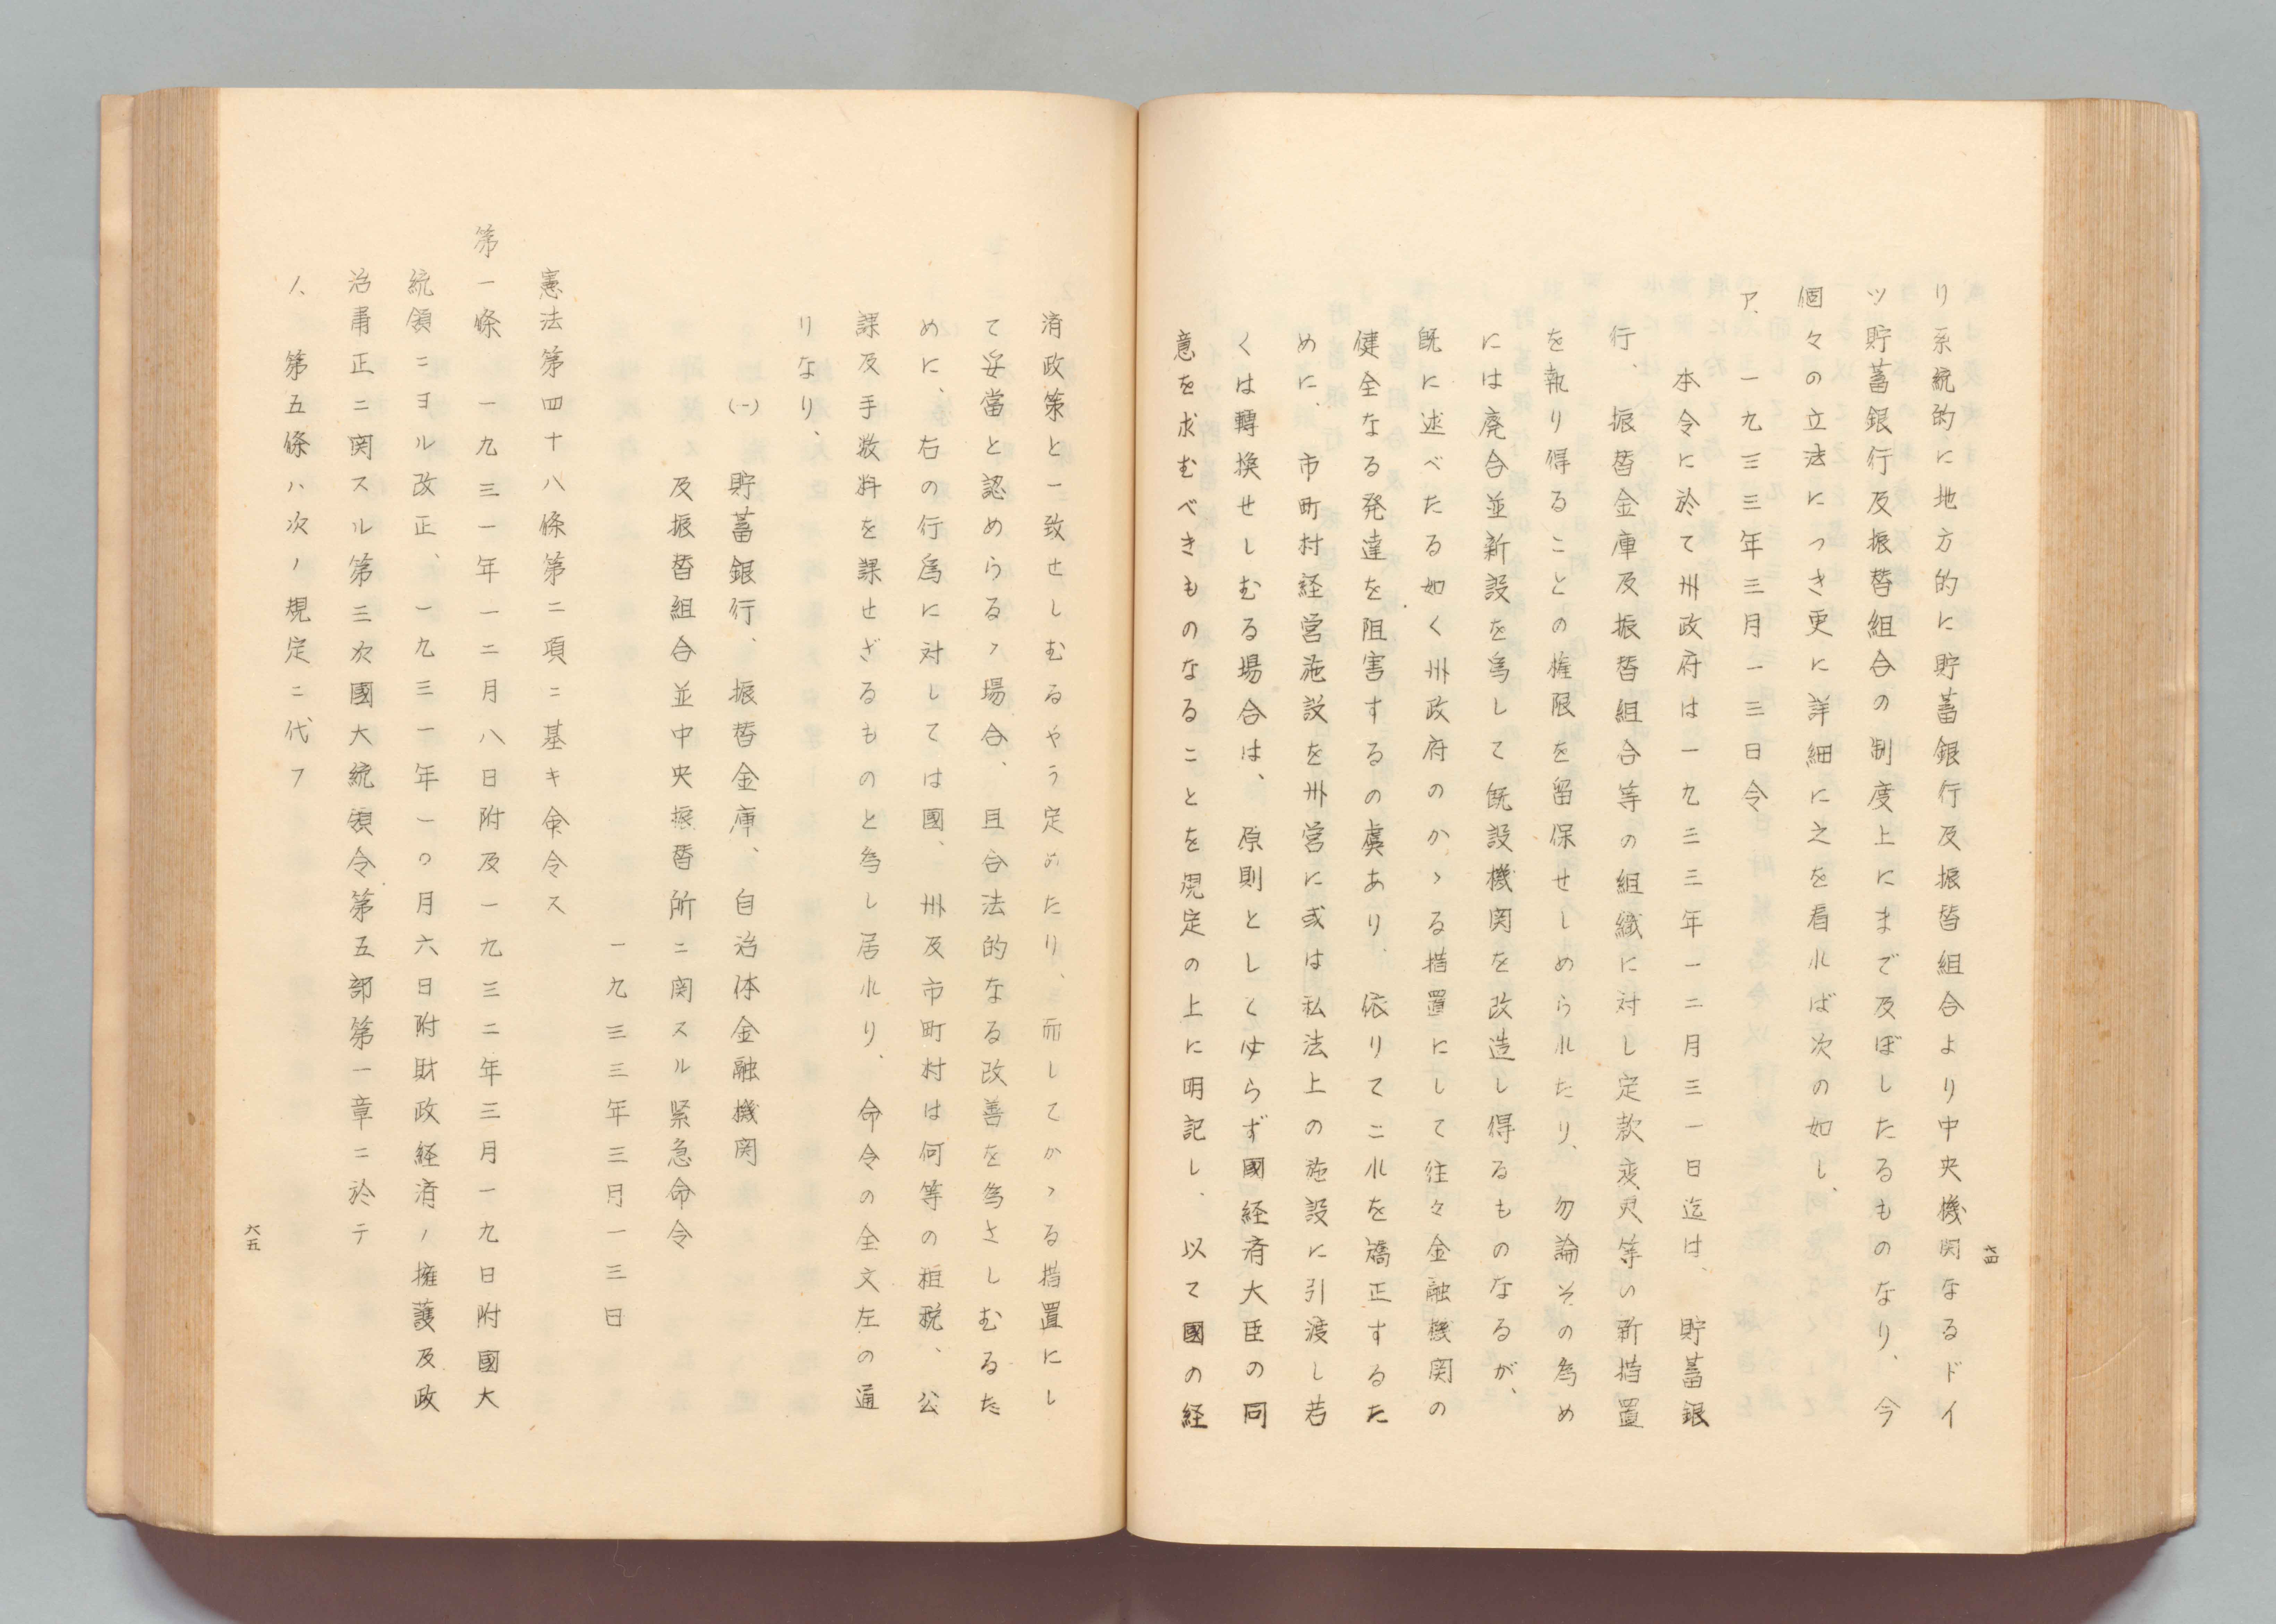 り系統的に地方的に貯蓄銀行及振替組合より中央機関なるドイ
ツ貯蓄銀行及振替組合の制度上にまで及ぼしたるものなり、今
個々の立法につき更に詳細に之を看れば次の如し、
ア、一九三三年三月一三日令
本令に於て州政府は一九三三年一二月三一日迄は、貯蓄銀
行、振替金庫及振替組合等の組織に対し定款変更等い新措置
を執り得ることの権限を留保せしめられたり、勿論その為め
には廃合並新設を為して既設機関を改造し得るものなるが、
既に述べたる如く州政府のかゝる措置にして往々金融機関の
健全なる発達を阻害するの虞あり、依りてこれを矯正するた
めに、市町村経営施設を州営に或は私法上の施設に引渡し若
くは轉換せしむる場合は、原則としてはらず國経済大臣の同
意を求むべきものなることを規定の上に明記し、以て國の経
六四
済政策と一致せしむるやう定めたり、而してかゝる措置にし
て妥當と認めらるゝ場合、且合法的なる改善を為さしむるた
めに、右の行爲に対しては國、州及市町村は何等の租税、公
課及手数料を課せざるものと為し居れり、命令の全文左の通
りなり、
(一)貯蓄銀行、振替金庫、自治体金融機関
及振替組合並中央振替所ニ関スル緊急命令
一九三三年三月一三日
憲法第四十八條第二項ニ基キ命令ス
第一條 一九三一年一二月八日附及一九三二年三月一九日附國大
統領ニヨル改正、一九三一年一〇月六日附財政経済ノ擁護及政
治粛正ニ関スル第三次國大統領令第五部第一章ニ於テ
ノ、第五條ハ次ノ規定ニ代フ
六五